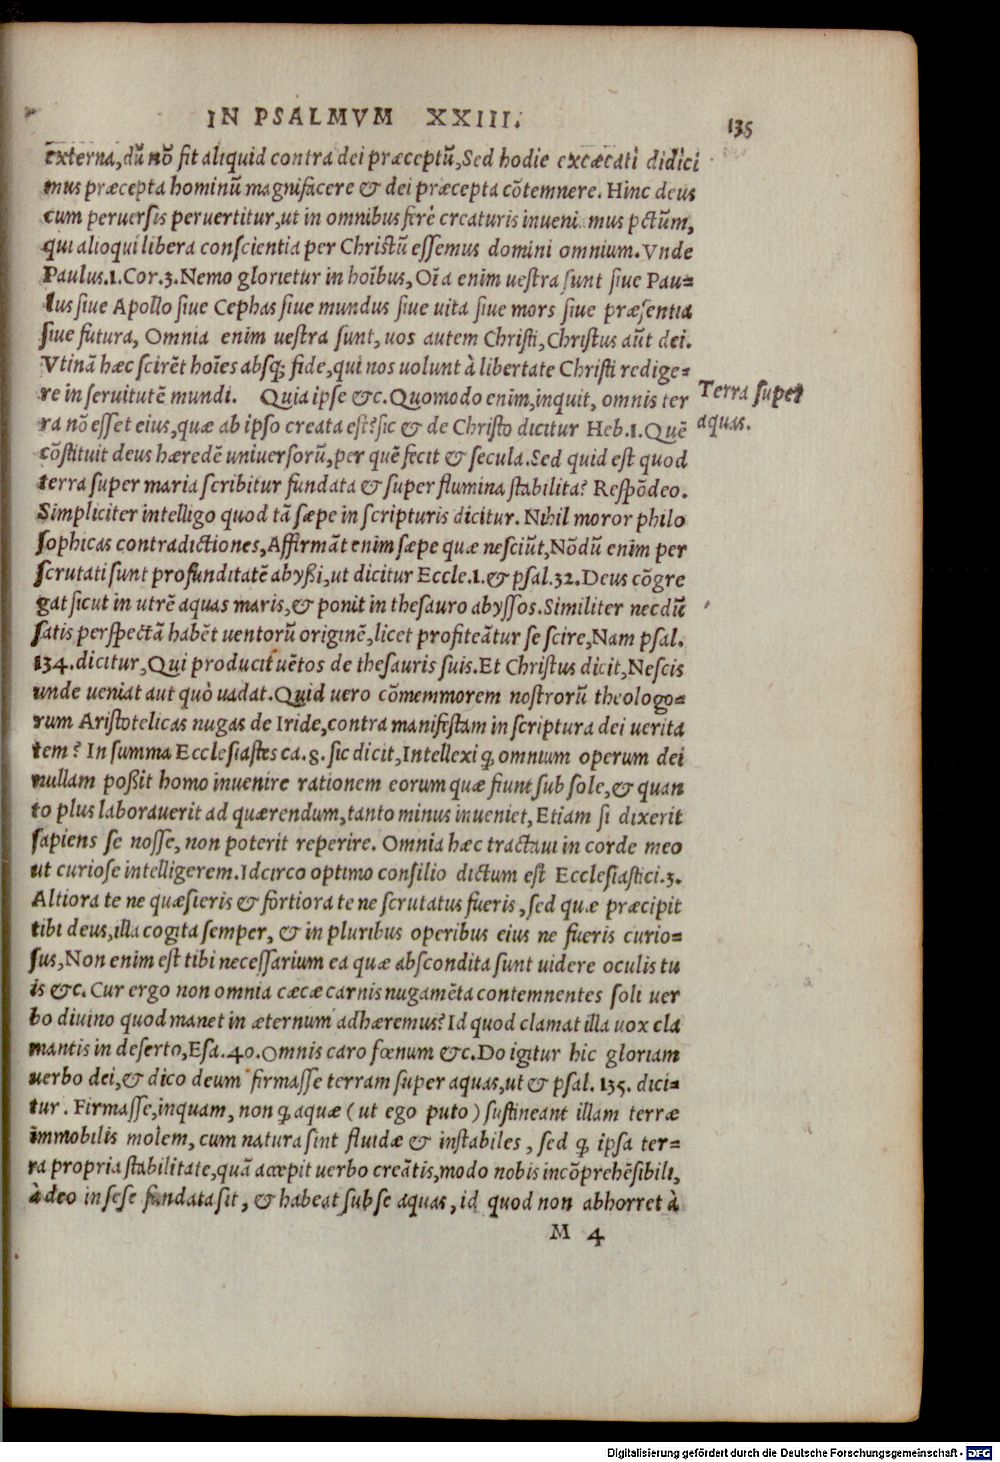 IN PSALMVM XXIII. 135
externa, dũ nõ fit aliquid contra dei præceptũ, Sed hodie excæcati didici
mus præcepta hominũ magnifacere & dei præcepta cõtemnere. Hinc deus
cum peruersis peruertitur, ut in omnibus ferè creaturis inueniamus pctũm,
qui alioqui libera conscientia per Christũ essemus domini omnium. Vnde
Paulus. 1. Cor. 3. Nemo glorietur in hoĩbus, Oĩa enim uestra sunt siue Pau=
lus siue Apollo siue Cephas siue mundus siue uita siue mors siue præsentia
siue futura, Omnia enim uestra sunt, uos autem Christi, Christus aũt dei.
Vtinã hæc scirẽt hoĩes absq; fide, qui nos uolunt à libertate Christi redige=
re in seruitutẽ mundi. Quia ipse &c. Quomodo enim, inquit, omnis ter
Terra super
ra nõ esset eius, quæ ab ipso creata est? sic & de Christo dicitur Heb. 1. Quẽ
aquas.
cõstituit deus hæredẽ uniuersorũ, per quẽ fecit & secula. Sed quid est quod
terra super maria scribitur fundata & super flumina stabilita? Respõdeo.
Simpliciter intelligo quod tã sæpe in scripturis dicitur. Nihil moror philo
sophicas contradictiones, Affirmãt enim sæpe quæ nesciũt, Nõdũ enim per
scrutati sunt profunditatẽ abyßi, ut dicitur Eccle. 1. & psal. 32. Deus cõgre
gat sicut in utrẽ aquas maris, & ponit in thesauro abyssos. Similiter necdũ
satis perspectã habẽt uentorũ originẽ, licet profiteãtur se scire, Nam psal.
134. dicitur, Qui producit uẽtos de thesauris suis. Et Christus dicit, Nescis
unde ueniat aut quò uadat. Quid uero cõmemorem nostrorũ theologo=
rum Aristotelicas nugas de Iride, contra manifestam in scriptura dei uerita
tem? In summa Ecclesiastes ca. 8. sic dicit, Intellexi q̃ omnium operum dei
nullam poßit homo inuenire rationem eorum quæ fiunt sub sole, & quan
to plus laborauerit ad quærendum, tanto minus inueniet, Etiam si dixerit
sapiens se nosse, non poterit reperire. Omnia hæc tractaui in corde meo
ut curiose intelligerem. Idcirco optimo consilio dictum est Ecclesiastici. 3.
Altiora te ne quæsieris & fortiora te ne scrutatus fueris, sed quæ præcipit
tibi deus, illa cogita semper, & in pluribus operibus eius ne fueris curio=
sus, Non enim est tibi necessarium ea quæ abscondita sunt uidere oculis tu
is &c. Cur ergo non omnia cæcæ carnis nugamẽta contemnentes soli uer
bo diuino quod manet in æternum adhæremus? Id quod clamat illa uox cla
mantis in deserto, Esa. 40. Omnis caro fœnum &c. Do igitur hic gloriam
uerbo dei, & dico deum firmasse terram super aquas, ut & psal. 135. dici=
tur. Firmasse, inquam, non q̃ aquæ (ut ego puto) sustineant illam terræ
immobilis molem, cum natura sint fluidæ & instabiles, sed q̃ ipsa ter=
ra propria stabilitate, quã accepit uerbo creãtis, modo nobis incõprehẽsibili,
àdeo in sese fundata sit, & habeat sub se aquas, id quod non abhorret à
M 4
Digitalisierung gefördert durch die Deutsche Forschungsgemeinschaft - DFG